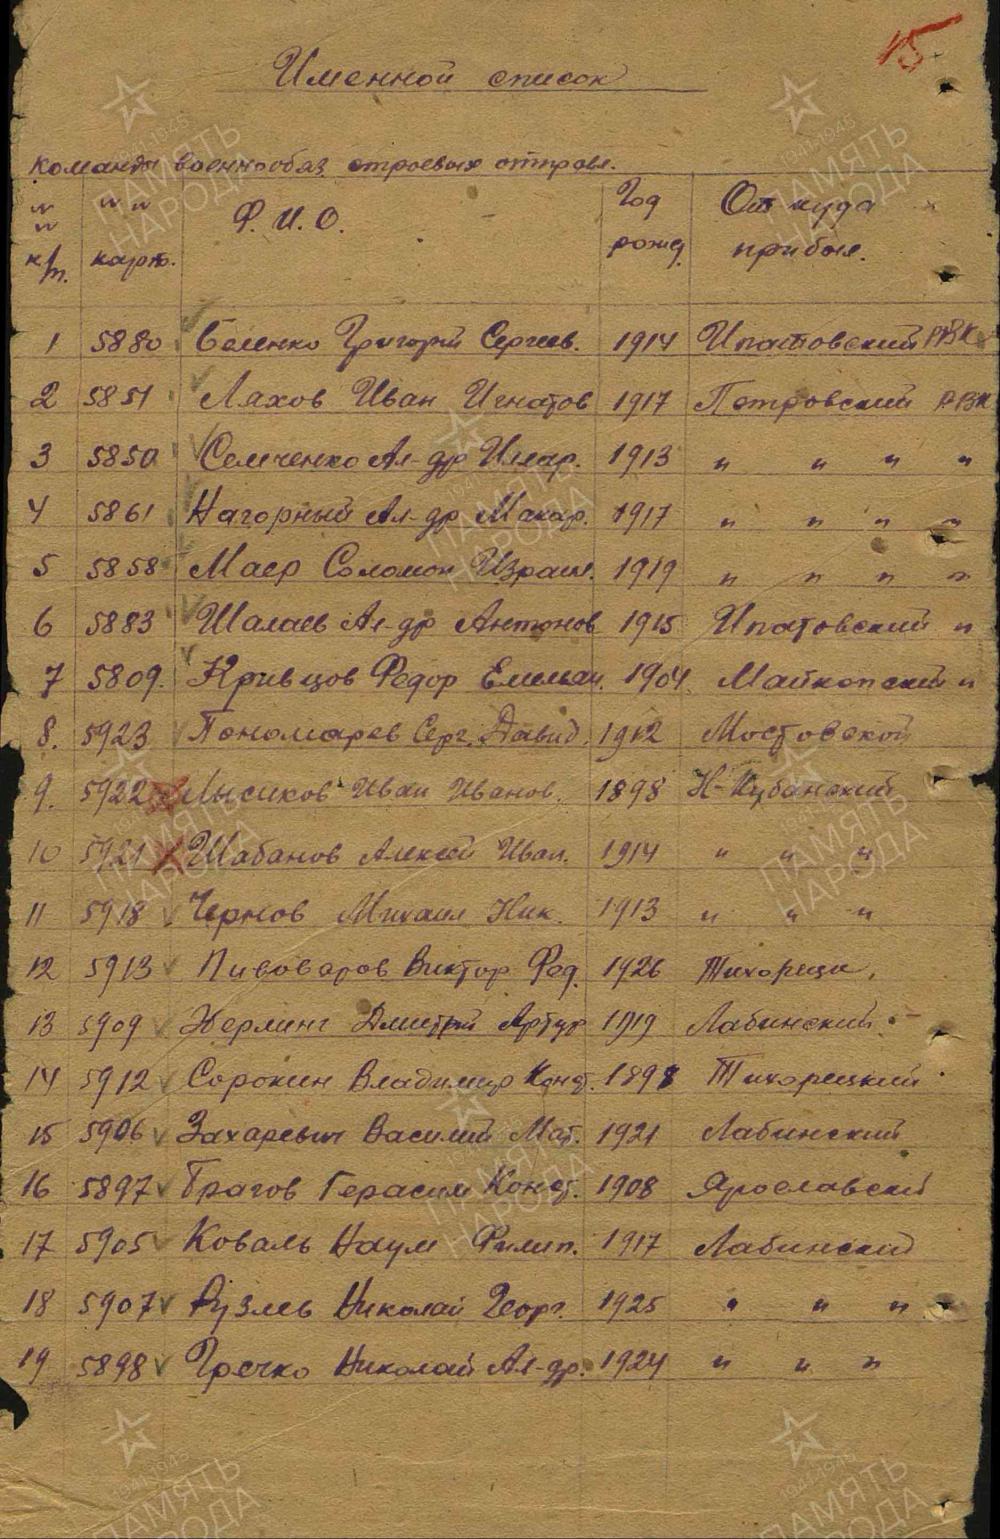 15
Именной список
команды военнообяз строевых отправл.
№№ п/п. №№ карт. Ф. И. О. Год рожд. От куда прибыл.
1 5880 Беленко Григорий Сергеев. 1914 Ипатовский РВК
2 5851 Ляхов Иван Игнатов 1917 Петровский РВК
3 5850 Семченко Ал-др Илар. 1913 " " " "
4 5861 Нагорный Ал-др Макар. 1917 " " " "
5 5858 Маер Соломон Израил. 1919 " " " "
6 5883 Шалаев Ал-др Антонов 1915 Ипатовский "
7 5809. Кривцов Федор Емельян. 1904 Майкопский "
8. 5923 Пономарев Серг. Давид. 1912 Мостовской
9. 5922 Лысиков Иван Иванов. 1898 Н-Кубанский
10 5921 Шабанов Алексей Иван. 1914 " " "
11 5918 Чернов Михаил Ник. 1913 " " "
12 5913 Пивоваров Виктор Фед. 1926 Тихорецк.
13 5909 Херлинг Дмитрий Артур 1919 Лабинский
14 5912 Сорокин Владимир Конст. 1898 Тихорецкий
15 5906 Захаревич Василий Мат. 1921 Лабинский
16 5897 Брагов Герасим Конст. 1908 Ярославский
17 5905 Коваль Наум Филип. 1917 Лабинский
18 5907 Рузлев Николай Георг. 1925 " " "
19 5898 Гречко Николай Ал-др. 1924 " " "